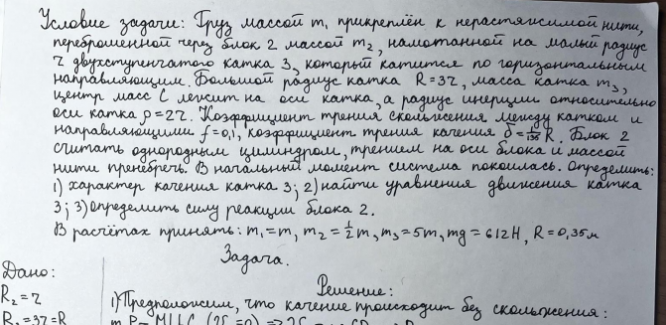 Условие задачи: Груз массой m₁ прикреплён к нерастяжимой нити,
переброшенной через блок 2 массой m₂, намотанной на малый радиус
r двухступенчатого катка 3, который катится по горизонтальным
направляющим. Большой радиус катка R=3r, масса катка m₃,
центр масс C лежит на оси катка, а радиус инерции относительно
оси катка ρ=2r. Коэффициент трения скольжения между катком и
направляющими f=0,1, коэффициент трения качения δ= R. Блок 2
считать однородным цилиндром, трением на оси блока и массой
нити пренебречь. В начальный момент система покоилась. Определить:
1) характер качения катка 3; 2) найти уравнения движения катка
3; 3) определить силу реакции блока 2.
В расчётах принять: m₁=m, m₂=½m, m₃=5m, mg=612Н, R=0,35м
Задача.
Дано:
Решение:
R₂=r
1) Предположим, что качение происходит без скольжения:
=3r=R